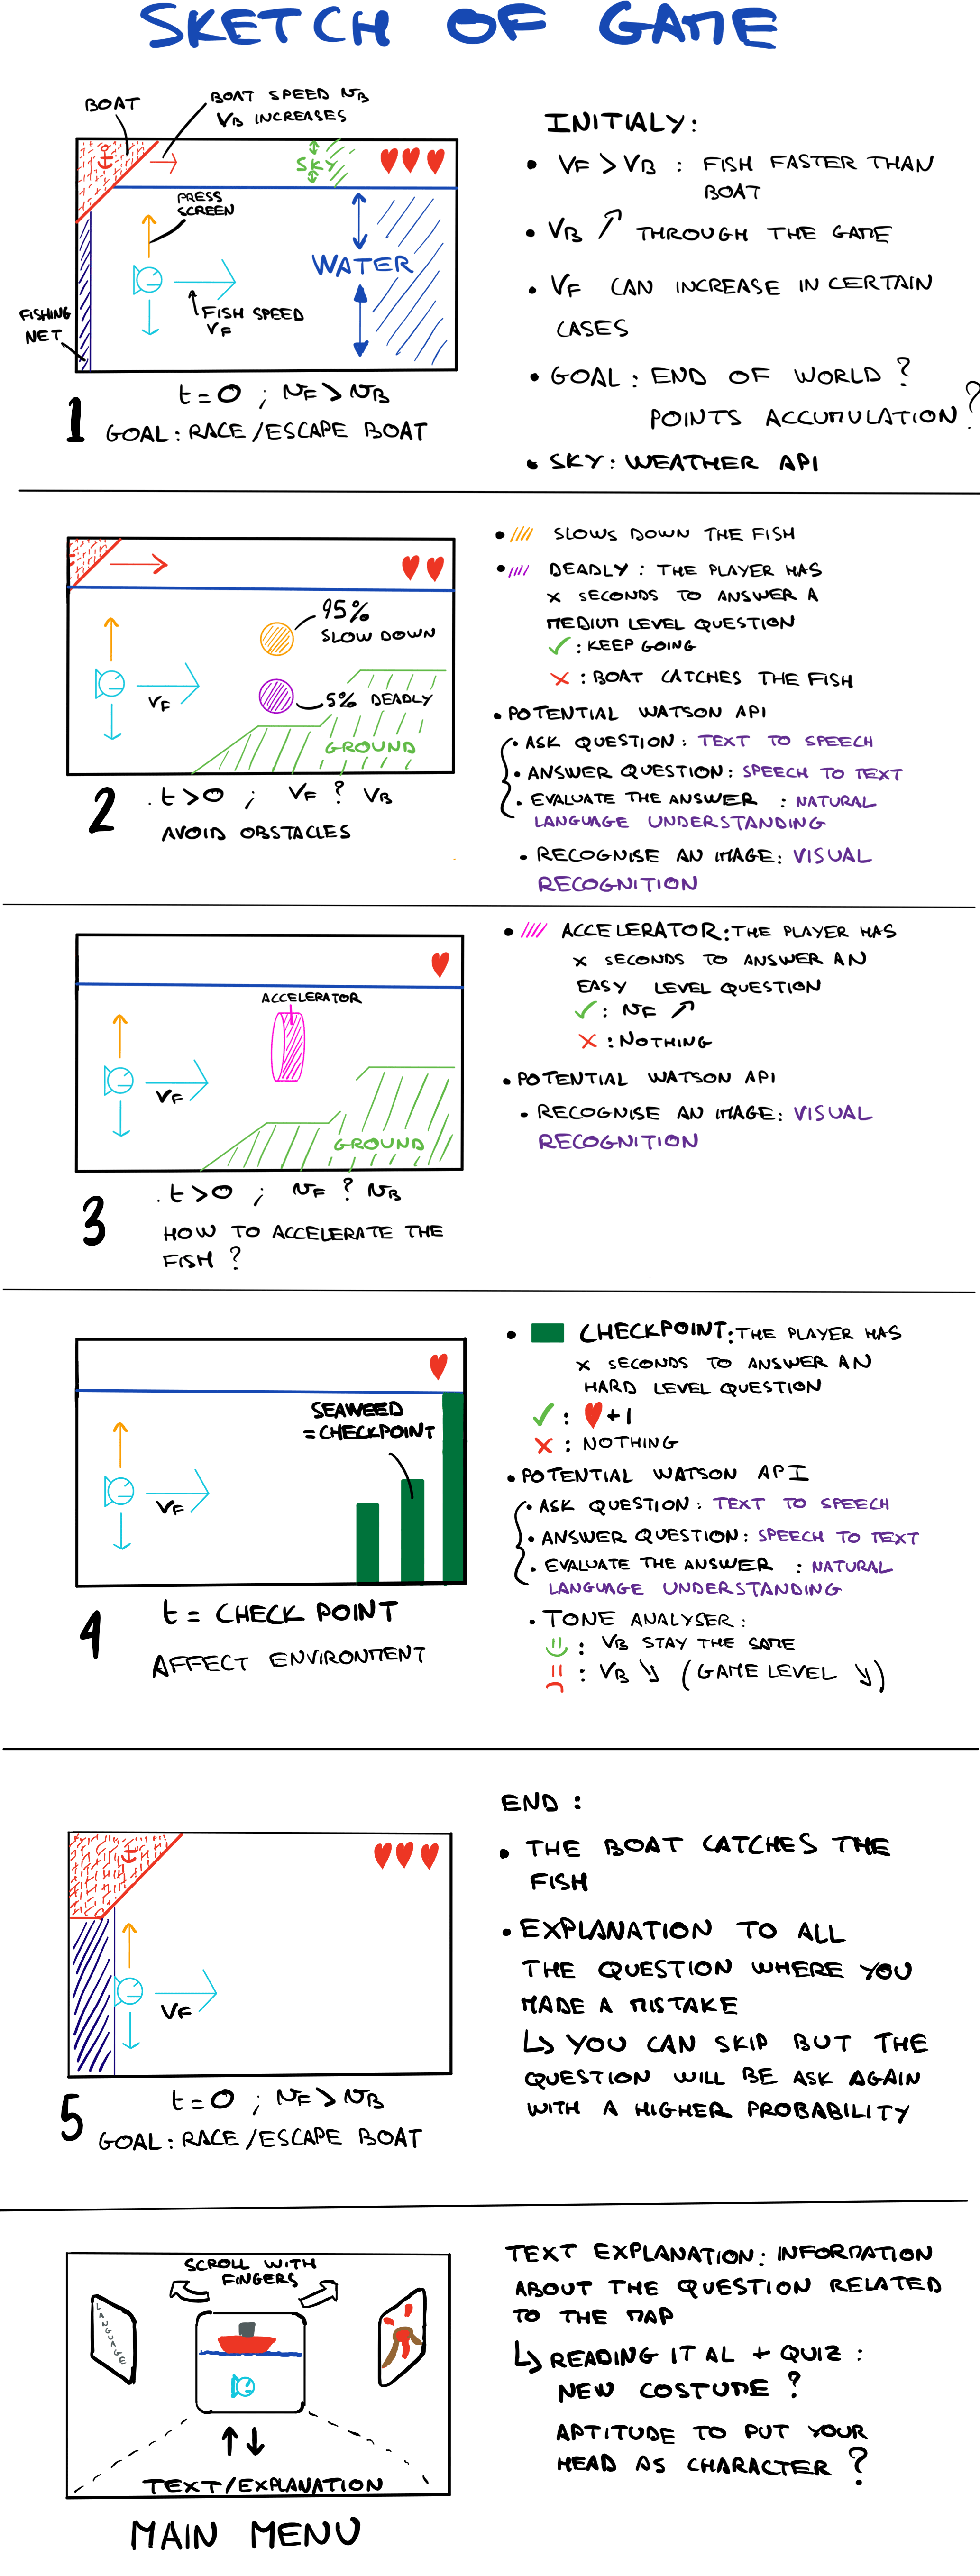 SKETCH OF GAME
BOAT
BOAT SPEED VB
VB INCREASES
SKY
PRESS
SCREEN
WATER
FISHING
NET
FISH SPEED
VF
t=0 ; VF > VB
1 GOAL: RACE/ESCAPE BOAT
INITIALY:
• VF > VB : FISH FASTER THAN
BOAT
• VB ↗ THROUGH THE GAME
• VF CAN INCREASE IN CERTAIN
CASES
• GOAL: END OF WORLD ?
POINTS ACCUMULATION ?
• SKY: WEATHER API
95%
SLOW DOWN
VF
5% DEADLY
GROUND
2 . t>0 ; VF ? VB
AVOID OBSTACLES
• SLOWS DOWN THE FISH
• DEADLY : THE PLAYER HAS
X SECONDS TO ANSWER A
MEDIUM LEVEL QUESTION
✓ : KEEP GOING
✗ : BOAT CATCHES THE FISH
• POTENTIAL WATSON API
• ASK QUESTION: TEXT TO SPEECH
• ANSWER QUESTION: SPEECH TO TEXT
• EVALUATE THE ANSWER : NATURAL
LANGUAGE UNDERSTANDING
• RECOGNISE AN IMAGE: VISUAL
RECOGNITION
ACCELERATOR
VF
GROUND
3 . t>0 ; VF ? VB
HOW TO ACCELERATE THE
FISH ?
• ACCELERATOR: THE PLAYER HAS
X SECONDS TO ANSWER AN
EASY LEVEL QUESTION
✓ : VF ↗
✗ : NOTHING
• POTENTIAL WATSON API
• RECOGNISE AN IMAGE: VISUAL
RECOGNITION
SEAWEED
= CHECKPOINT
VF
4 t = CHECK POINT
AFFECT ENVIRONMENT
• CHECKPOINT: THE PLAYER HAS
X SECONDS TO ANSWER AN
HARD LEVEL QUESTION
✓ : ♥+1
✗ : NOTHING
• POTENTIAL WATSON API
• ASK QUESTION: TEXT TO SPEECH
• ANSWER QUESTION: SPEECH TO TEXT
• EVALUATE THE ANSWER : NATURAL
LANGUAGE UNDERSTANDING
• TONE ANALYSER:
: VB STAY THE SAME
: VB ↘ (GAME LEVEL ↘)
VF
t=0 ; VF > VB
5 GOAL: RACE/ESCAPE BOAT
END :
• THE BOAT CATCHES THE
FISH
• EXPLANATION TO ALL
THE QUESTION WHERE YOU
MADE A MISTAKE
↳ YOU CAN SKIP BUT THE
QUESTION WILL BE ASK AGAIN
WITH A HIGHER PROBABILITY
SCROLL WITH
FINGERS
LANGUAGE
TEXT/EXPLANATION
MAIN MENU
TEXT EXPLANATION: INFORMATION
ABOUT THE QUESTION RELATED
TO THE MAP
↳ READING IT AL + QUIZ :
NEW COSTUME ?
APTITUDE TO PUT YOUR
HEAD AS CHARACTER ?